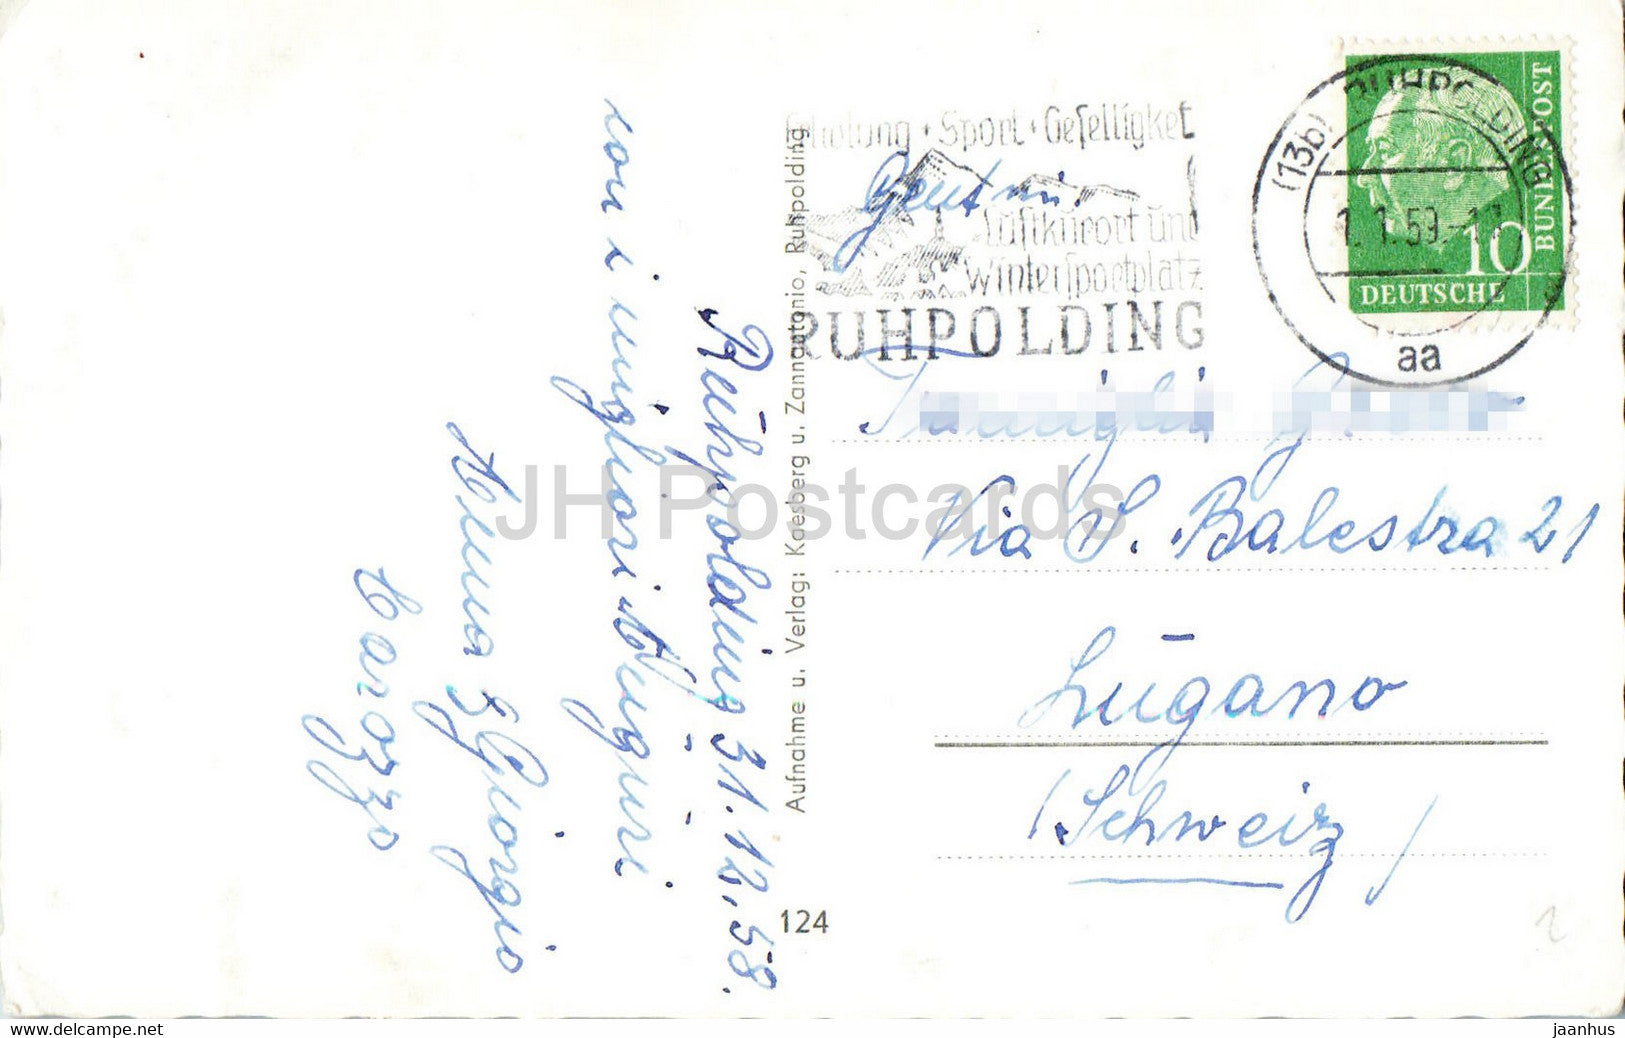 Ruhpolding 31.12.58.
con i migliori Auguri
Anna & Giorgio
Carozzo
Aufnahme u. Verlag: Kaesberg u. Zannantonio, Ruhpolding
124
Erholung + Sport + Geselligkeit
Luftkurort und
Wintersportplatz
RUHPOLDING
(13b) RUHPOLDING
1.1.59.-17
aa
BUNDESPOST
10
DEUTSCHE
Gent.mi
Via S. Balestra 21
Lugano
(Schweiz)
JH Postcards
2
Europe - Germany - jaanhus